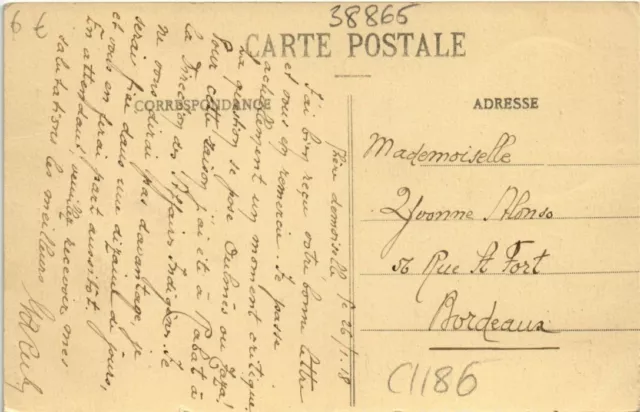 38865
CARTE POSTALE
CORRESPONDANCE
ADRESSE
le 26/1. 18
demoiselle
J'ai bien reçu votre bonne lettre
et vous en remercie. Je passe
actuellement un moment critique.
La question se pose Oulmès ou Taza!
Pour cette raison j'ai été à Rabat à
la Direction des Affaires Indigènes. Je
ne vous dirai pas davantage, je
serai fixé dans une dizaine de jours,
et vous en ferai part aussitôt
En attendant, veuillez recevoir mes
salutations les meilleures
Mademoiselle
Yvonne Alonso
56 Rue St Fort
Bordeaux
C1186